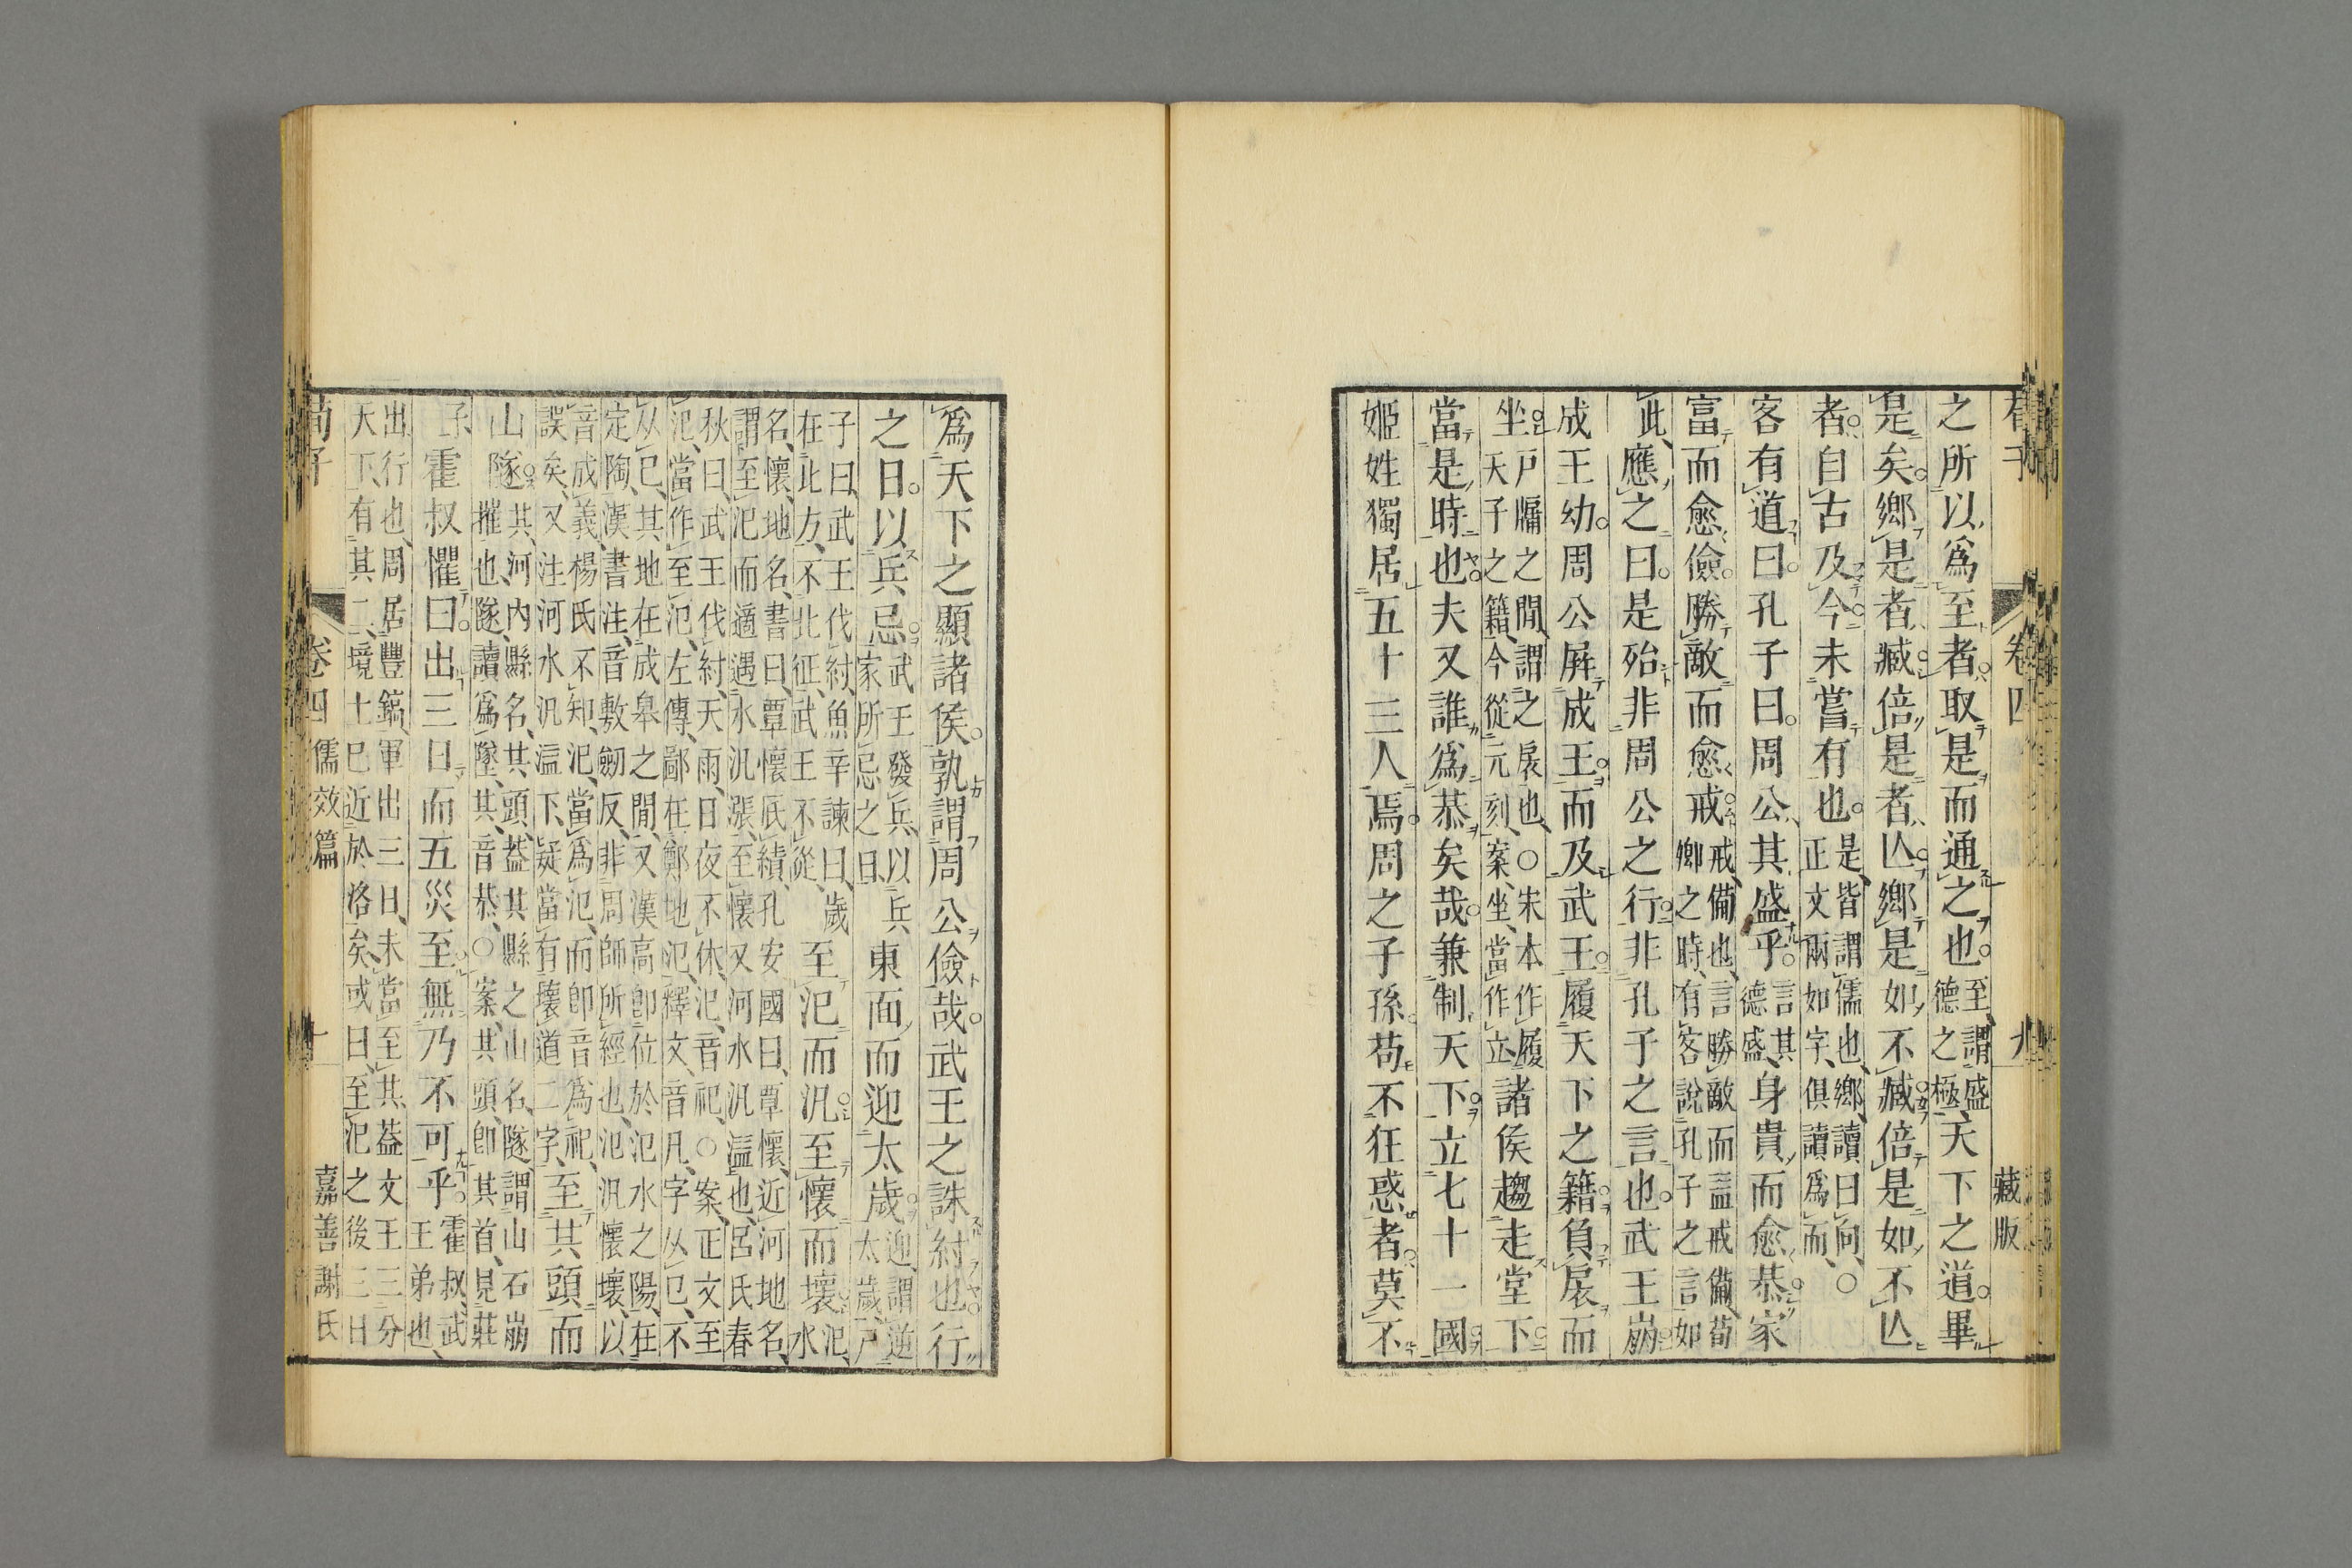 卷四 九 藏版
之所以爲至者。取是而通之也。至、謂盛德之極、天下之道。畢
是矣。鄉是者臧。倍是者亾。鄉是如不臧。倍是如不亾
者。自古及今。未嘗有也。是、皆謂儒也、鄉、讀曰向、○正文兩如字、俱讀爲而、
客有道曰。孔子曰。周公其盛乎。言其德盛、身貴而愈恭。家
富而愈儉。勝敵而愈戒。戒、備也、言勝敵而益戒備、荀卿之時、有客說孔子之言如
此、應之曰。是殆非周公之行。非孔子之言也。武王崩。
成王幼。周公屏成王。而及武王。履天下之籍。負扆而
坐。戶牖之閒、謂之扆也、○宋本作履天子之籍、今從元刻、案、坐、當作立、諸侯趨走堂下。
當是時也。夫又誰爲恭矣哉。兼制天下。立七十一國。
姬姓獨居五十三人焉。周之子孫。苟不狂惑者。莫不
爲天下之顯諸侯。孰謂周公儉哉。武王之誅紂也。行
之日。以兵忌。武王發兵、以兵家所忌之日、東面而迎太歲。迎、謂逆太歲、尸
子曰、武王伐紂、魚辛諫曰、歲在北方、不北征、武王不從、至汜而汎。至懷而壞。汜、水
名、懷、地名、書曰、覃懷厎績、孔安國曰、覃懷、近河地名、謂至汜而適遇水汎漲、至懷又河水汎溢也、呂氏春
秋曰、武王伐紂、天雨、日夜不休、汜、音祀、○案、正文至汜、當作至氾、左傳、鄙在鄭地氾、釋文、音凡、字从巳、不
从巳、其地在成皋之閒、又漢高卽位於汜水之陽、在定陶、漢書注、音敷劒反、非周師所經也、汜汎懷壞、以
音成義、楊氏不知、汜、當爲氾、而卽音爲祀、誤矣、又注河水汎溢下、疑當有壞道二字、至其頭而
山隧。其、河內縣名、其頭、葢其縣之山名、隧、謂山石崩摧也、隧、讀爲墜、其、音恭、○案、其頭、卽其首、見莊
子 霍叔懼曰。出三日而五災至。無乃不可乎。霍叔、武王弟也、
出、行也、周居豐鎬、軍出三日、未當至其、葢文王三分天下、有其二、境土已近於洛矣、或曰、至汜之後三日
荀子 卷四 儒效篇 十 嘉善謝氏